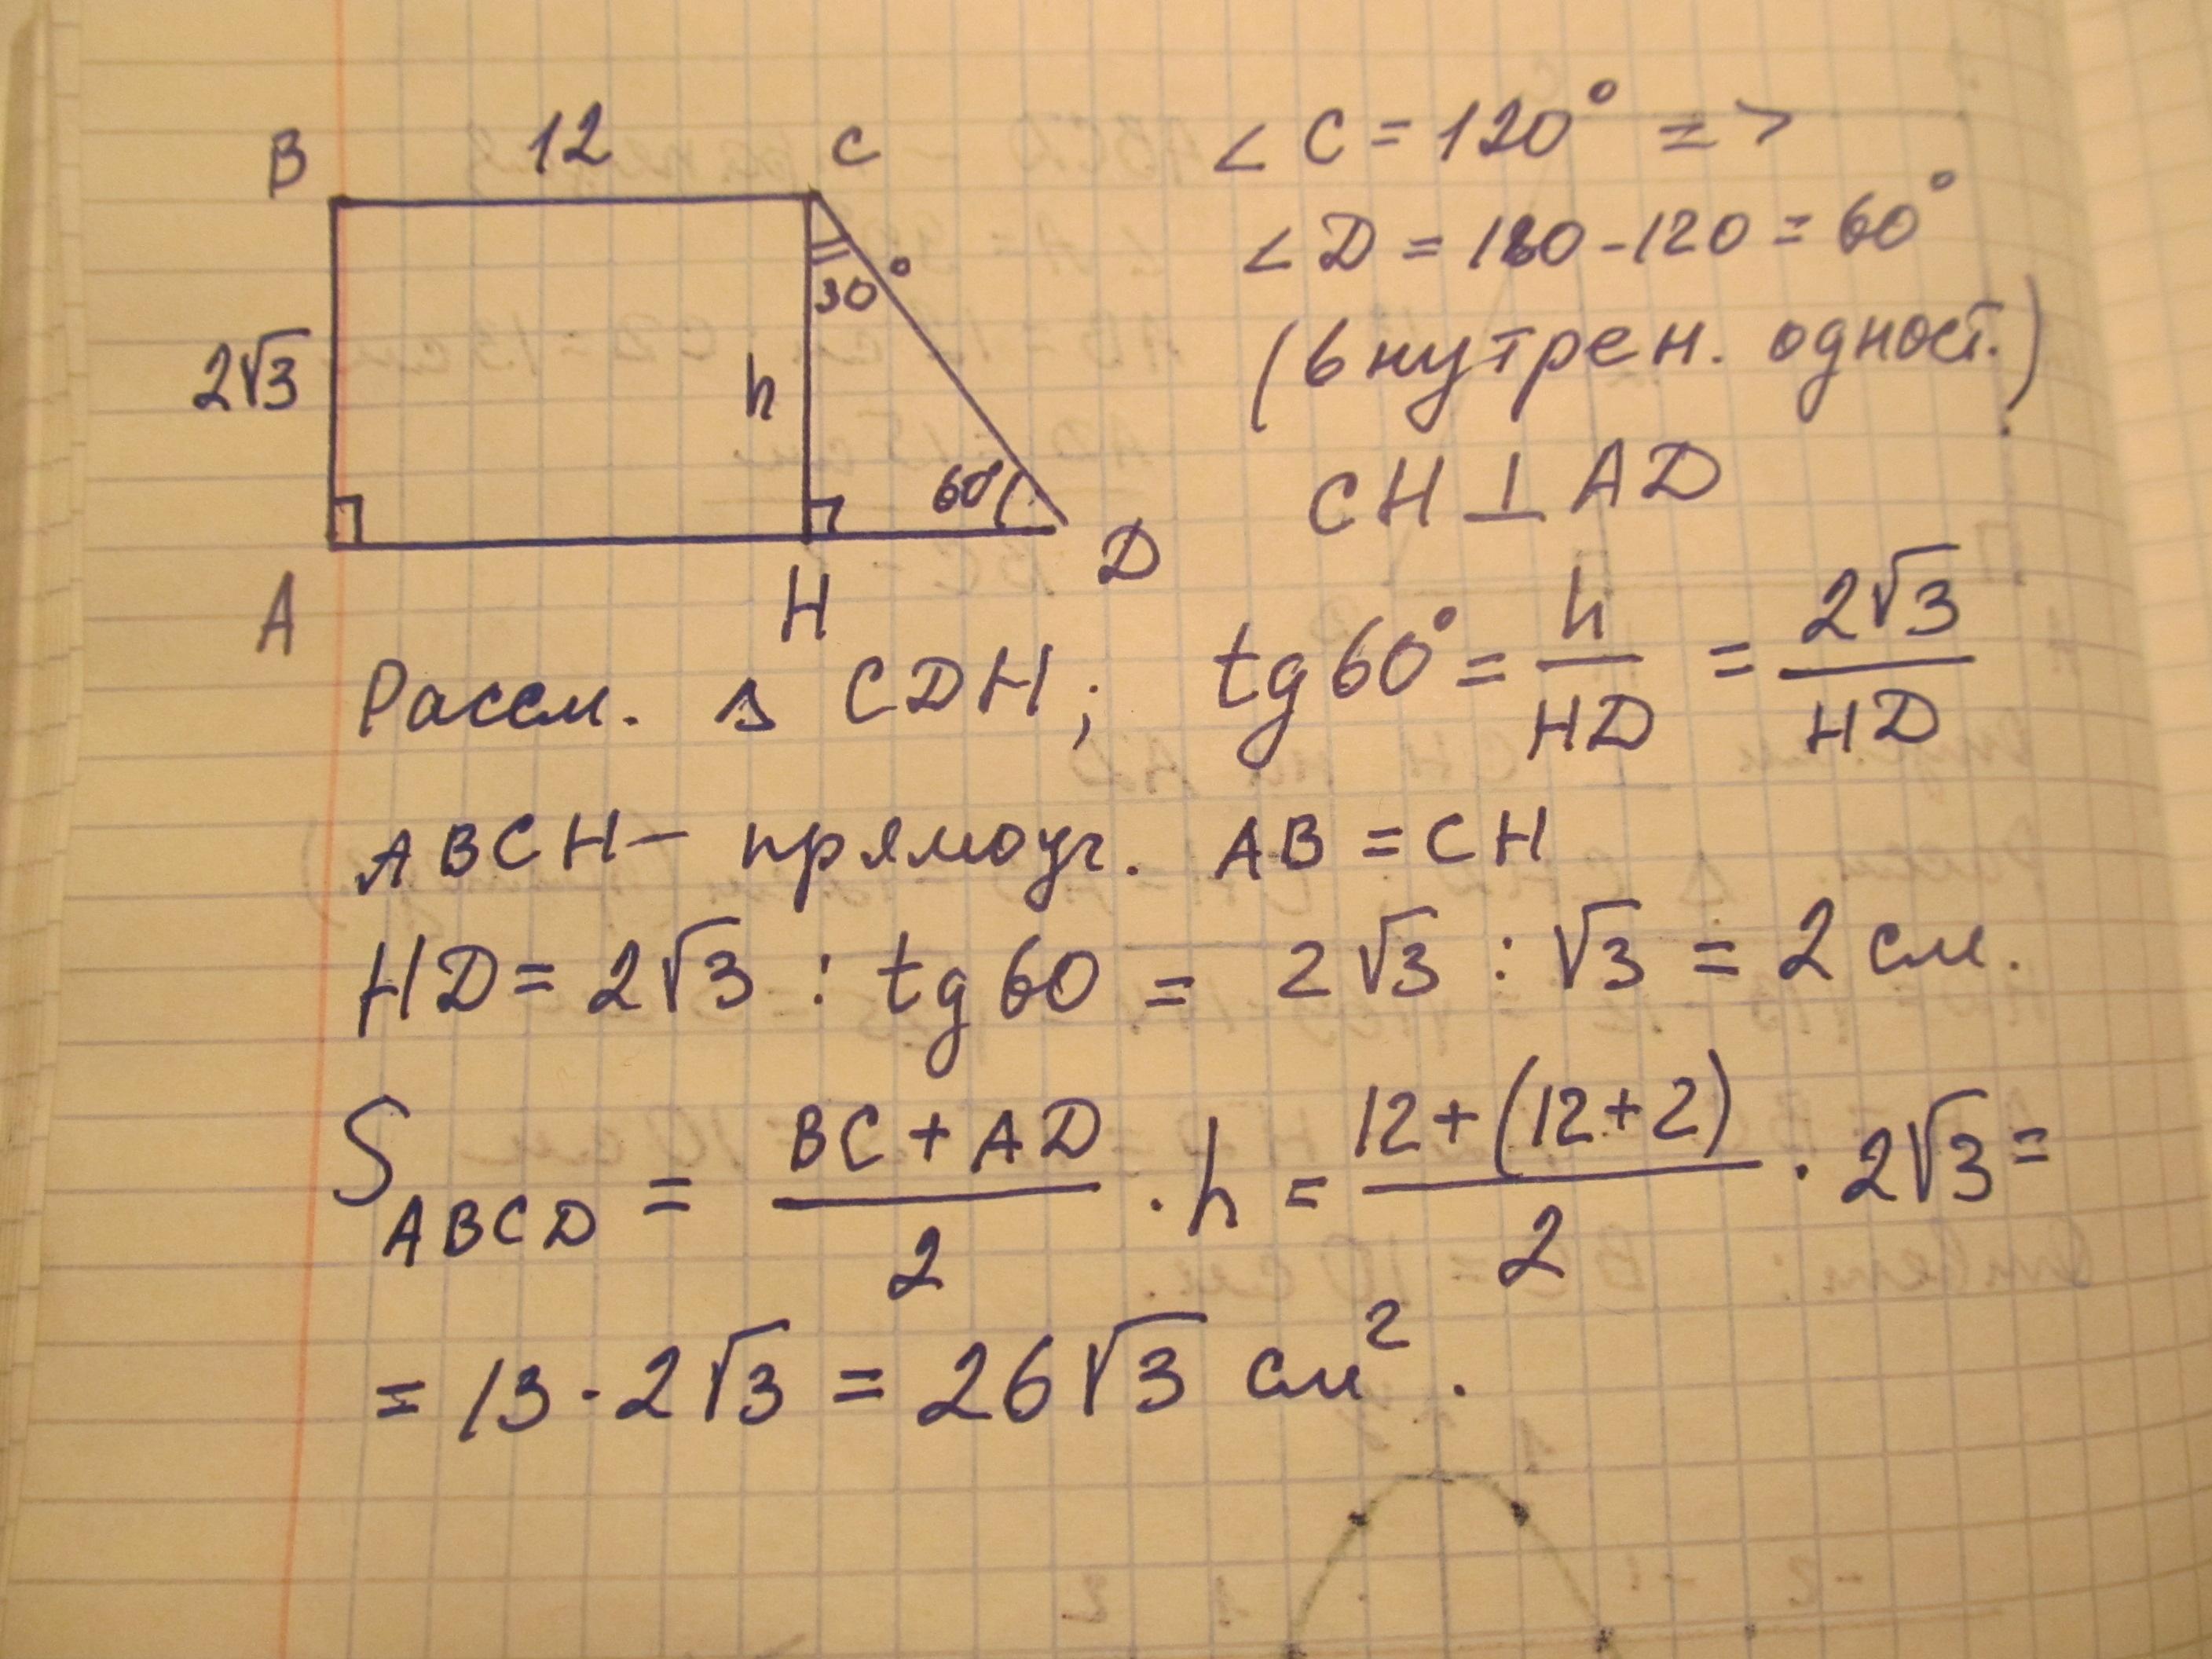 B 12 C
2√3 h 30° 60°
A H D
∠ C = 120° =>
∠ D = 180 - 120 = 60°
(внутрен. одност.)
CH ⊥ AD
Рассм. Δ CDH; tg 60° = h/HD = 2√3/HD
ABCH – прямоуг. AB = CH
HD = 2√3 : tg 60 = 2√3 : √3 = 2 см.
S ABCD = (BC + AD)/2 · h = 12 + (12 + 2)/2 · 2√3 =
= 13 · 2√3 = 26√3 см².